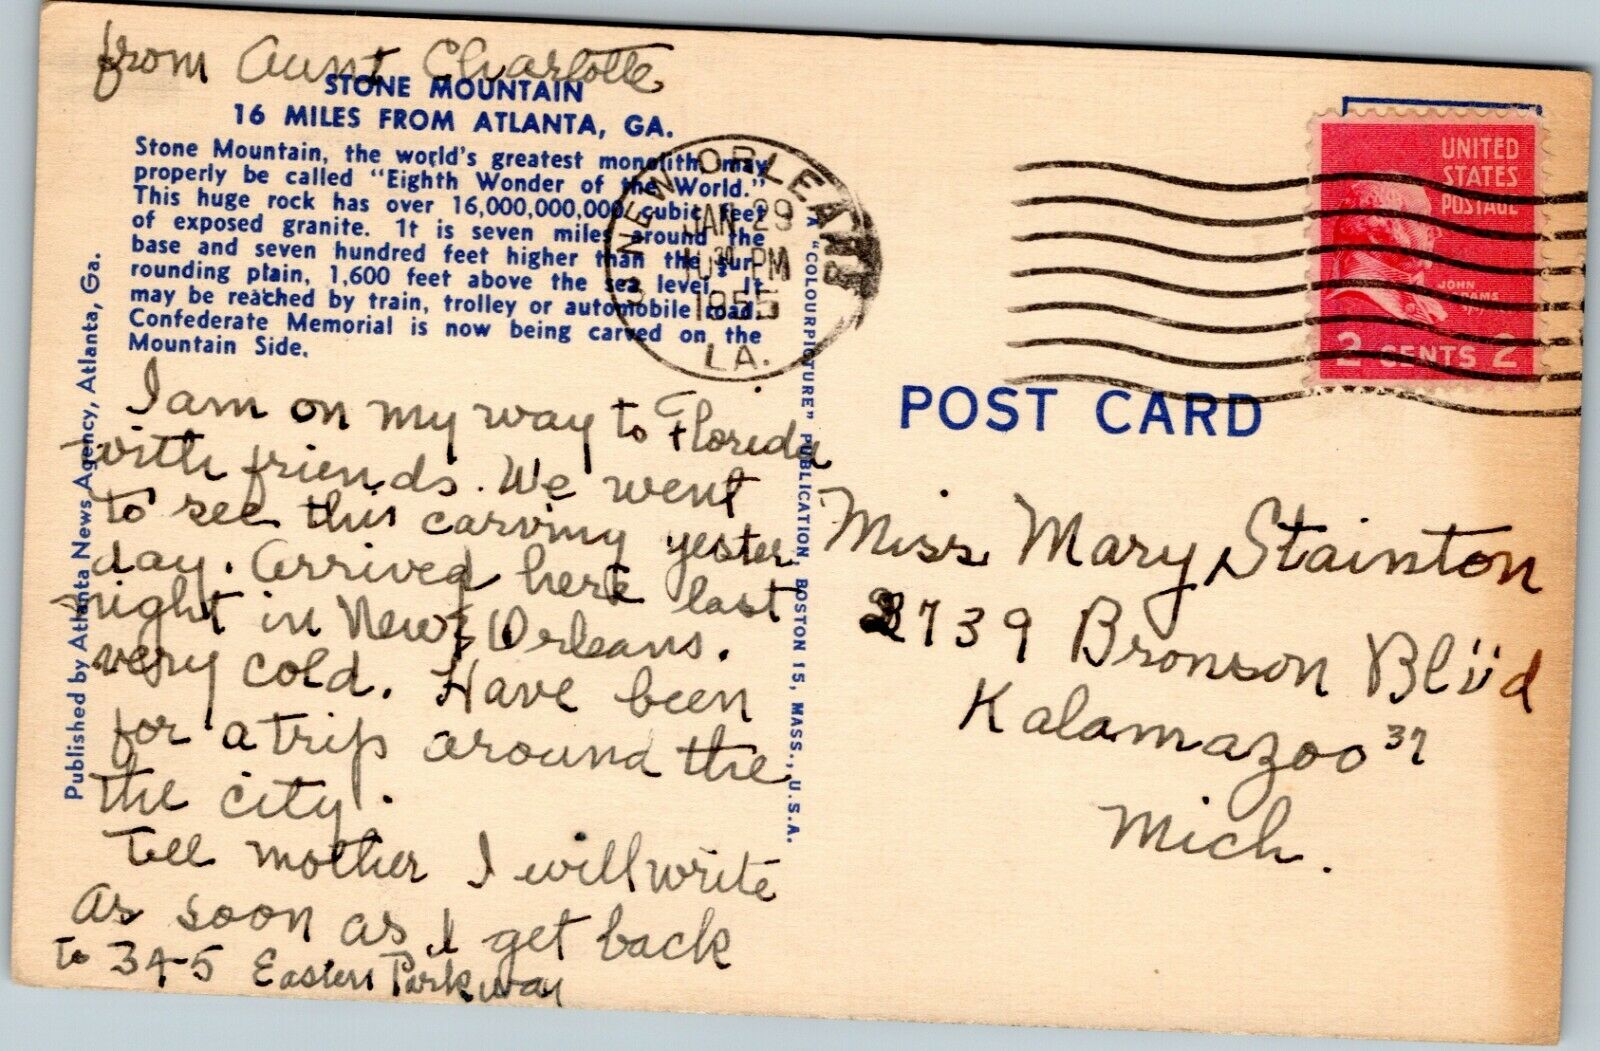 from Aunt Charlotte
STONE MOUNTAIN
16 MILES FROM ATLANTA, GA.
Stone Mountain, the world's greatest monolith may
properly be called "Eighth Wonder of the World."
This huge rock has over 16,000,000,000 cubic feet
of exposed granite. It is seven miles around the
base and seven hundred feet higher than the sur-
rounding plain, 1,600 feet above the sea level. It
may be reached by train, trolley or automobile road.
Confederate Memorial is now being carved on the
Mountain Side.
I am on my way to Florida
with friends. We went
to see this carving yester
day. Arrived here last
night in New Orleans.
very cold. Have been
for a trip around the
the city.
Tell mother I will write
as soon as I get back
to 345 Eastern Parkway
Published by Atlanta News Agency, Atlanta, Ga.
A "COLOURPICTURE" PUBLICATION, BOSTON 15, MASS., U.S.A.
NEW ORLEANS
JAN 29
10 30 PM
1955
LA.
UNITED
STATES
POSTAGE
JOHN
ADAMS
2 CENTS 2
POST CARD
Miss Mary Stainton
2739 Bronson Blvd
Kalamazoo 37
Mich.